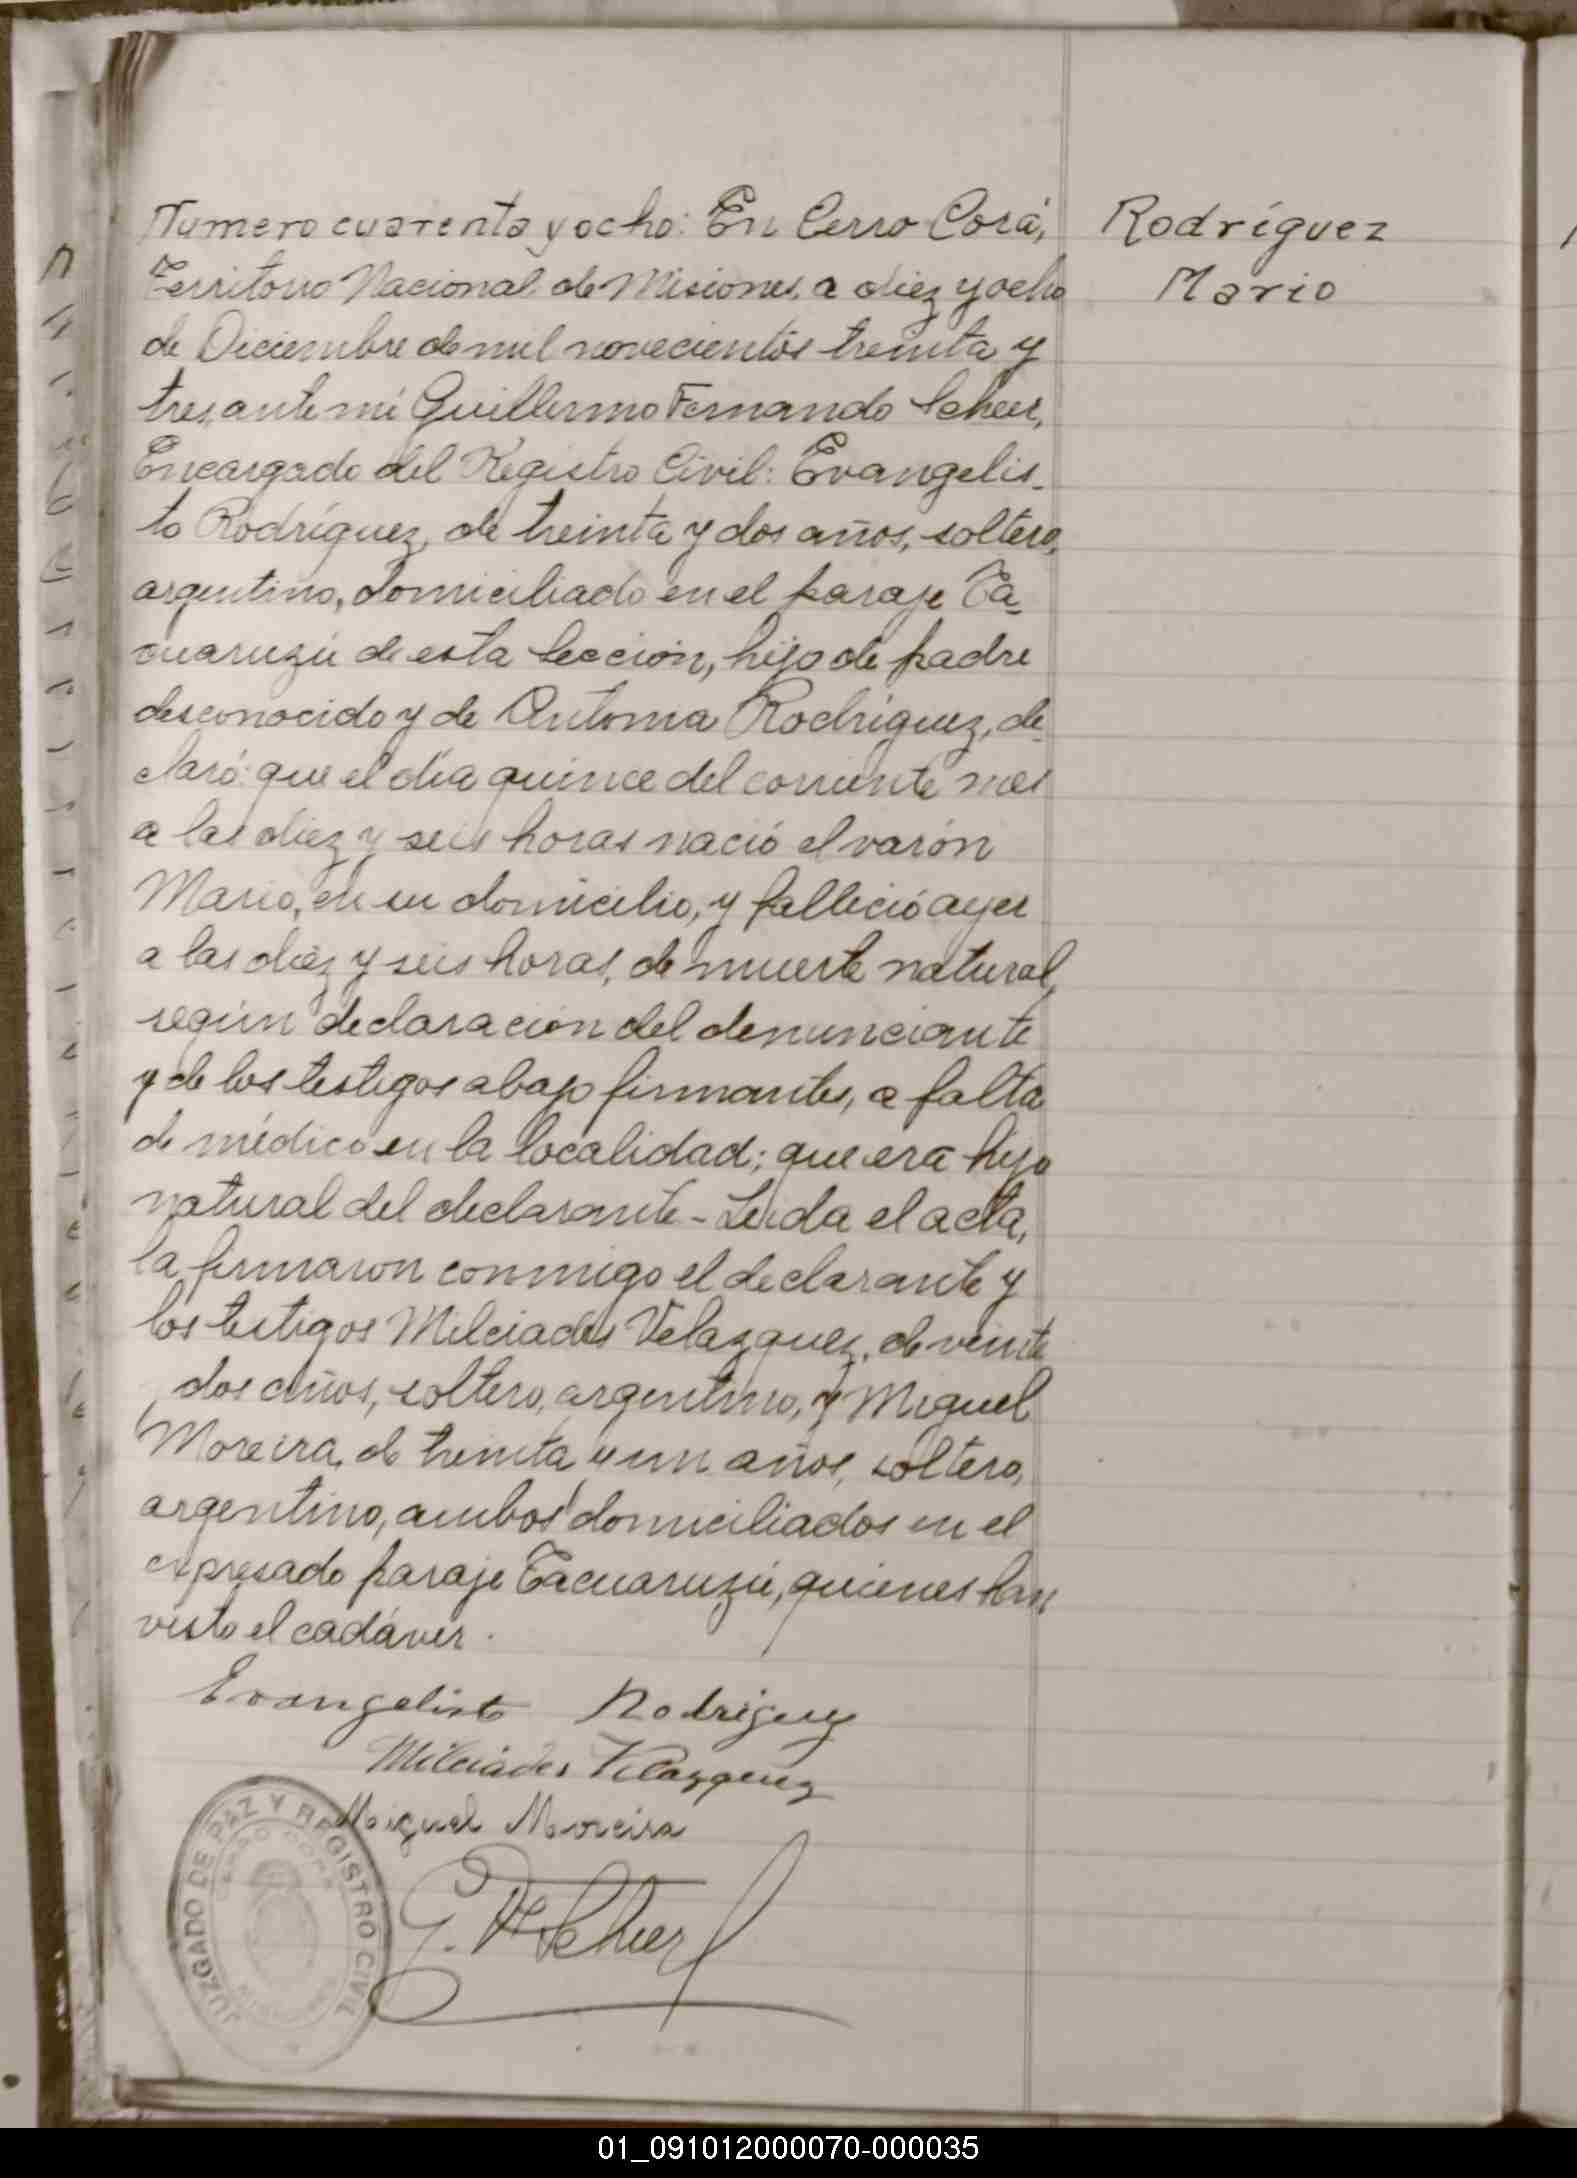 Numero cuarenta y ocho: En Cerro Corá,
Territorio Nacional de Misiones, a diez y ocho
de Diciembre de mil novecientos treinta y
tres, ante mi Guillermo Fernando Scheer,
Encargado del Registro Civil: Evangelis-
to Rodríguez, de treinta y dos años, soltero,
argentino, domiciliado en el paraje Ta-
cuaruzú de esta Sección, hijo de padre
desconocido y de Antonia Rodríguez, de-
claró: que el día quince del corriente mes
a las diez y seis horas nació el varón
Mario, en su domicilio, y falleció ayer
a las diez y seis horas, de muerte natural,
según declaración del denunciante
y de los testigos abajo firmantes, a falta
de médico en la localidad; que era hijo
natural del declarante - Leida el acta,
la firmaron conmigo el declarante y
los testigos Milciades Velazquez, de veinte
dos años, soltero, argentino, y Miguel
Moreira, de treinta y un años, soltero,
argentino, ambos domiciliados en el
expresado paraje Tacuaruzú, quienes han
visto el cadáver.
Rodríguez
Mario
Evangelisto Rodriguez
Milciades Velazquez
Miguel Moreira
G. F. Scheer
JUZGADO DE PAZ Y REGISTRO CIVIL
CERRO CORÁ
01_091012000070-000035